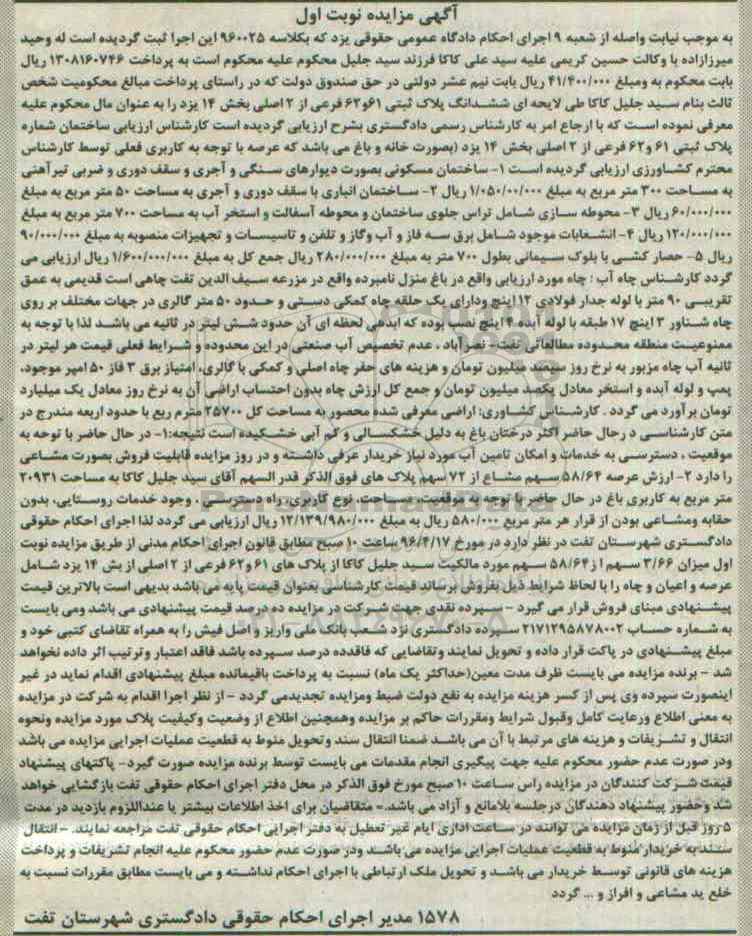 آگهی مزایده نوبت اول
به موجب نیابت واصله از شعبه ۹ اجرای احکام دادگاه عمومی حقوقی یزد که بکلاسه ۹۶۰۰۲۵ این اجرا ثبت گردیده است له وحید
میرزازاده با وکالت حسین کریمی علیه سید علی کاکا فرزند سید جلیل محکوم علیه محکوم است به پرداخت ۱۳۰۸۱۶۰۷۴۶ ریال
بابت محکوم به ومبلغ ۴۱/۴۰۰/۰۰۰ ریال بابت نیم عشر دولتی در حق صندوق دولت که در راستای پرداخت مبالغ محکومیت شخص
ثالث بنام سید جلیل کاکا طی لایحه ای ششدانگ پلاک ثبتی ۶۱و۶۲ فرعی از ۲ اصلی بخش ۱۴ یزد را به عنوان مال محکوم علیه
معرفی نموده است که با ارجاع امر به کارشناس رسمی دادگستری بشرح ارزیابی گردیده است کارشناس ارزیابی ساختمان شماره
پلاک ثبتی ۶۱ و۶۲ فرعی از ۲ اصلی بخش ۱۴ یزد (بصورت خانه و باغ می باشد که عرصه با توجه به کاربری فعلی توسط کارشناس
محترم کشاورزی ارزیابی گردیده است ۱- ساختمان مسکونی بصورت دیوارهای سنگی و آجری و سقف دوری و ضربی تیرآهنی
به مساحت ۳۰۰ متر مربع به مبلغ ۱/۰۵۰/۰۰/۰۰۰ ریال ۲- ساختمان انباری با سقف دوری و آجری به مساحت ۵۰ متر مربع به مبلغ
۶۰/۰۰۰/۰۰۰ ریال ۳- محوطه سازی شامل تراس جلوی ساختمان و محوطه آسفالت و استخر آب به مساحت ۷۰۰ متر مربع به مبلغ
۱۲۰/۰۰۰/۰۰۰ ریال ۴- انشعابات موجود شامل برق سه فاز و آب وگاز و تلفن و تاسیسات و تجهیزات منصوبه به مبلغ ۹۰/۰۰۰/۰۰۰
ریال ۵- حصار کشی با بلوک سیمانی بطول ۷۰۰ متر به مبلغ ۲۸۰/۰۰۰/۰۰۰ ریال جمع کل به مبلغ ۱/۶۰۰/۰۰۰/۰۰۰ ریال ارزیابی می
گردد کارشناس چاه آب : چاه مورد ارزیابی واقع در باغ منزل نامبرده واقع در مزرعه سیف الدین تفت چاهی است قدیمی به عمق
تقریبی ۹۰ متر با لوله جدار فولادی ۱۲ اینچ ودارای یک حلقه چاه کمکی دستی و حدود ۵۰ متر گالری در جهات مختلف بر روی
چاه شناور ۳ اینچ ۱۷ طبقه با لوله آبده ۳ اینچ نصب بوده که ابدهی لحظه ای آن حدود شش لیتر در ثانیه می باشد لذا با توجه به
ممنوعیت منطقه محدوده مطالعاتی تفت- نصرآباد ، عدم تخصیص آب صنعتی در این محدوده و شرایط فعلی قیمت هر لیتر در
ثانیه آب چاه مزبور به نرخ روز سیصد میلیون تومان و هزینه های حفر چاه اصلی و کمکی با گالری، امتیاز برق ۳ فاز ۵۰ امپر موجود،
پمپ و لوله آبده و استخر معادل یکصد میلیون تومان و جمع کل ارزش چاه بدون احتساب اراضی آن به نرخ روز معادل یک میلیارد
تومان برآورد می گردد . کارشناس کشاوری: اراضی معرفی شده محصور به مساحت کل ۲۵۷۰۰ مترم ربع با حدود اربعه مندرج در
متن کارشناسی د رحال حاضر اکثر درختان باغ به دلیل خشکسالی و کم آبی خشکیده است نتیجه:۱- در حال حاضر با توجه به
موقعیت ، دسترسی به خدمات و امکان تامین آب مورد نیاز خریدار عرفی داشته و در روز مزایده قابلیت فروش بصورت مشاعی
را دارد ۲- ارزش عرصه ۵۸/۶۴ سهم مشاع از ۷۲ سهم پلاک های فوق الذکر قدر السهم آقای سید جلیل کاکا به مساحت ۲۰۹۳۱
متر مربع به کاربری باغ در حال حاضر با توجه به موقعیت، مساحت، نوع کاربری، راه دسترسی ، وجود خدمات روستایی، بدون
حقابه ومشاعی بودن از قرار هر متر مربع ۵۸۰/۰۰۰ ریال به مبلغ ۱۲/۱۳۹/۹۸۰/۰۰۰ ریال ارزیابی می گردد لذا اجرای احکام حقوقی
دادگستری شهرستان تفت در نظر دارد در مورخ ۹۶/۴/۱۷ ساعت ۱۰ صبح مطابق قانون اجرای احکام مدنی از طریق مزایده نوبت
اول میزان ۳/۶۶ سهم از ۵۸/۶۴ سهم مورد مالکیت سید جلیل کاکا از پلاک های ۶۱ و۶۲ فرعی از ۲ اصلی از بش ۱۴ یزد شامل
عرصه و اعیان و چاه را با لحاظ شرایط ذیل بفروش برساند قیمت کارشناسی بعنوان قیمت پایه می باشد بدیهی است بالاترین قیمت
پیشنهادی مبنای فروش قرار می گیرد - سپرده نقدی جهت شرکت در مزایده ده درصد قیمت پیشنهادی می باشد ومی بایست
به شماره حساب ۲۱۷۱۲۹۵۸۷۸۰۰۲ سپرده دادگستری نزد شعب بانک ملی واریز و اصل فیش را به همراه تقاضای کتبی خود و
مبلغ پیشنهادی در پاکت قرار داده و تحویل نمایند وتقاضایی که فاقدده درصد سپرده باشد فاقد اعتبار وترتیب اثر داده نخواهد
شد - برنده مزایده می بایست ظرف مدت معین(حداکثر یک ماه) نسبت به پرداخت باقیمانده مبلغ پیشنهادی اقدام نماید در غیر
اینصورت سپرده وی پس از کسر هزینه مزایده به نفع دولت ضبط ومزایده تجدیدمی گردد - از نظر اجرا اقدام به شرکت در مزایده
به معنی اطلاع ورعایت کامل وقبول شرایط ومقررات حاکم بر مزایده وهمچنین اطلاع از وضعیت وکیفیت پلاک مورد مزایده ونحوه
انتقال و تشریفات و هزینه های مرتبط با آن می باشد ضمنا انتقال سند وتحویل منوط به قطعیت عملیات اجرایی مزایده می باشد
ودر صورت عدم حضور محکوم علیه جهت پیگیری انجام مقدمات می بایست توسط برنده مزایده صورت گیرد- پاکتهای پیشنهاد
قیمت شرکت کنندگان در مزایده راس ساعت ۱۰ صبح مورخ فوق الذکر در محل دفتر اجرای احکام حقوقی تفت بازگشایی خواهد
شد وحضور پیشنهاد دهندگان درجلسه بلامانع و آزاد می باشد.- متقاضیان برای اخذ اطلاعات بیشتر یا عنداللزوم بازدید در مدت
۵ روز قبل از زمان مزایده می توانند در ساعت اداری ایام غیر تعطیل به دفتر اجرایی احکام حقوقی تفت مراجعه نمایند. -انتقال
سند به خریدار منوط به قطعیت عملیات اجرایی مزایده می باشد ودر صورت عدم حضور محکوم علیه انجام تشریفات و پرداخت
هزینه های قانونی توسط خریدار می باشد و تحویل ملک ارتباطی با اجرای احکام نداشته و می بایست مطابق مقررات نسبت به
خلع ید مشاعی و افراز و ... گردد
۱۵۷۸ مدیر اجرای احکام حقوقی دادگستری شهرستان تفت